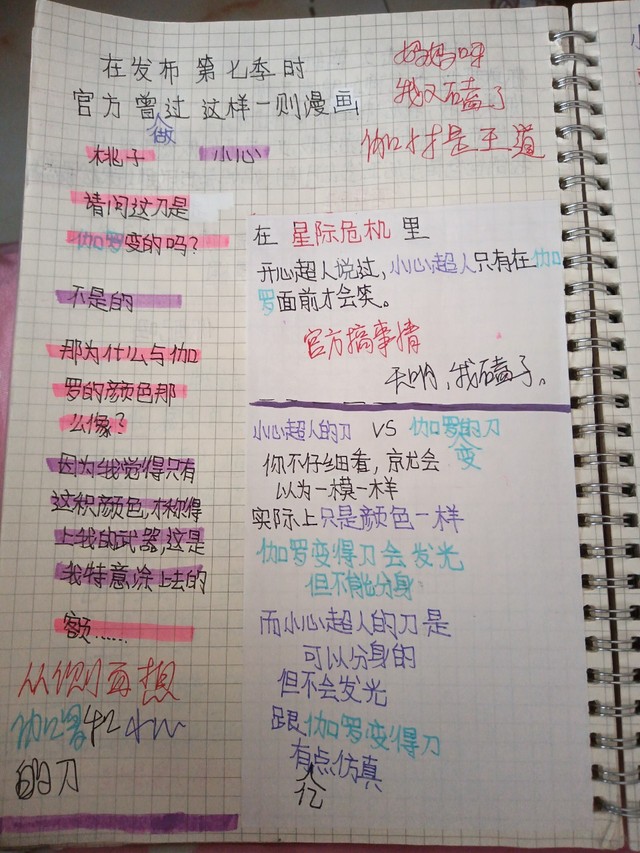 在发布第七季时
官方曾过这样一则漫画
做
妈妈呀
我又磕了
伽小才是王道
桃子 小心
请问这刀是
伽罗变的吗?
不是的
那为什么与伽
罗的颜色那
么像?
因为我觉得只有
这种颜色,才称得
上我的武器,这是
我特意涂上去的
额……
从侧面想
伽罗和小心
的刀
在 星际危机 里
开心超人说过,小心超人只有在伽
罗面前才会笑。
官方搞事情
天哟,我磕了。
小心超人的刀 VS 伽罗的刀
变
你不仔细看,京尤会
以为一模一样
实际上只是颜色一样
伽罗变得刀会发光
但不能分身
而小心超人的刀是
可以分身的
但不会发光
跟伽罗变得刀
有点仿真
亿